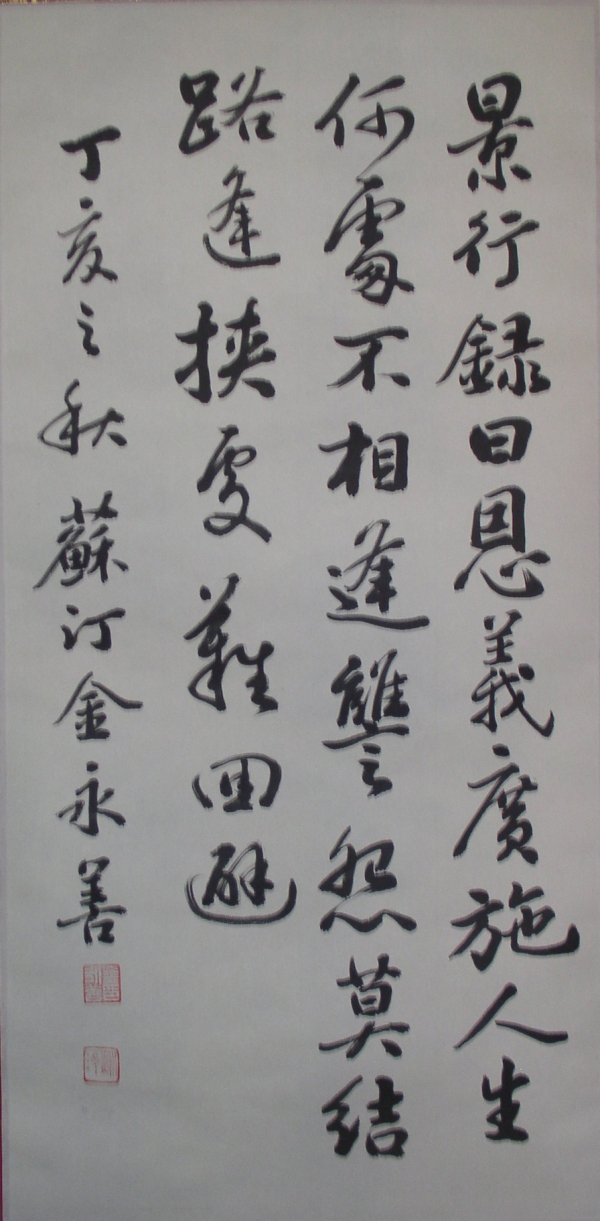 景行録曰恩義廣施人生
何處不相逢讐怨莫結
路逢挾處難回避
丁亥之秋 蘇汀金永善